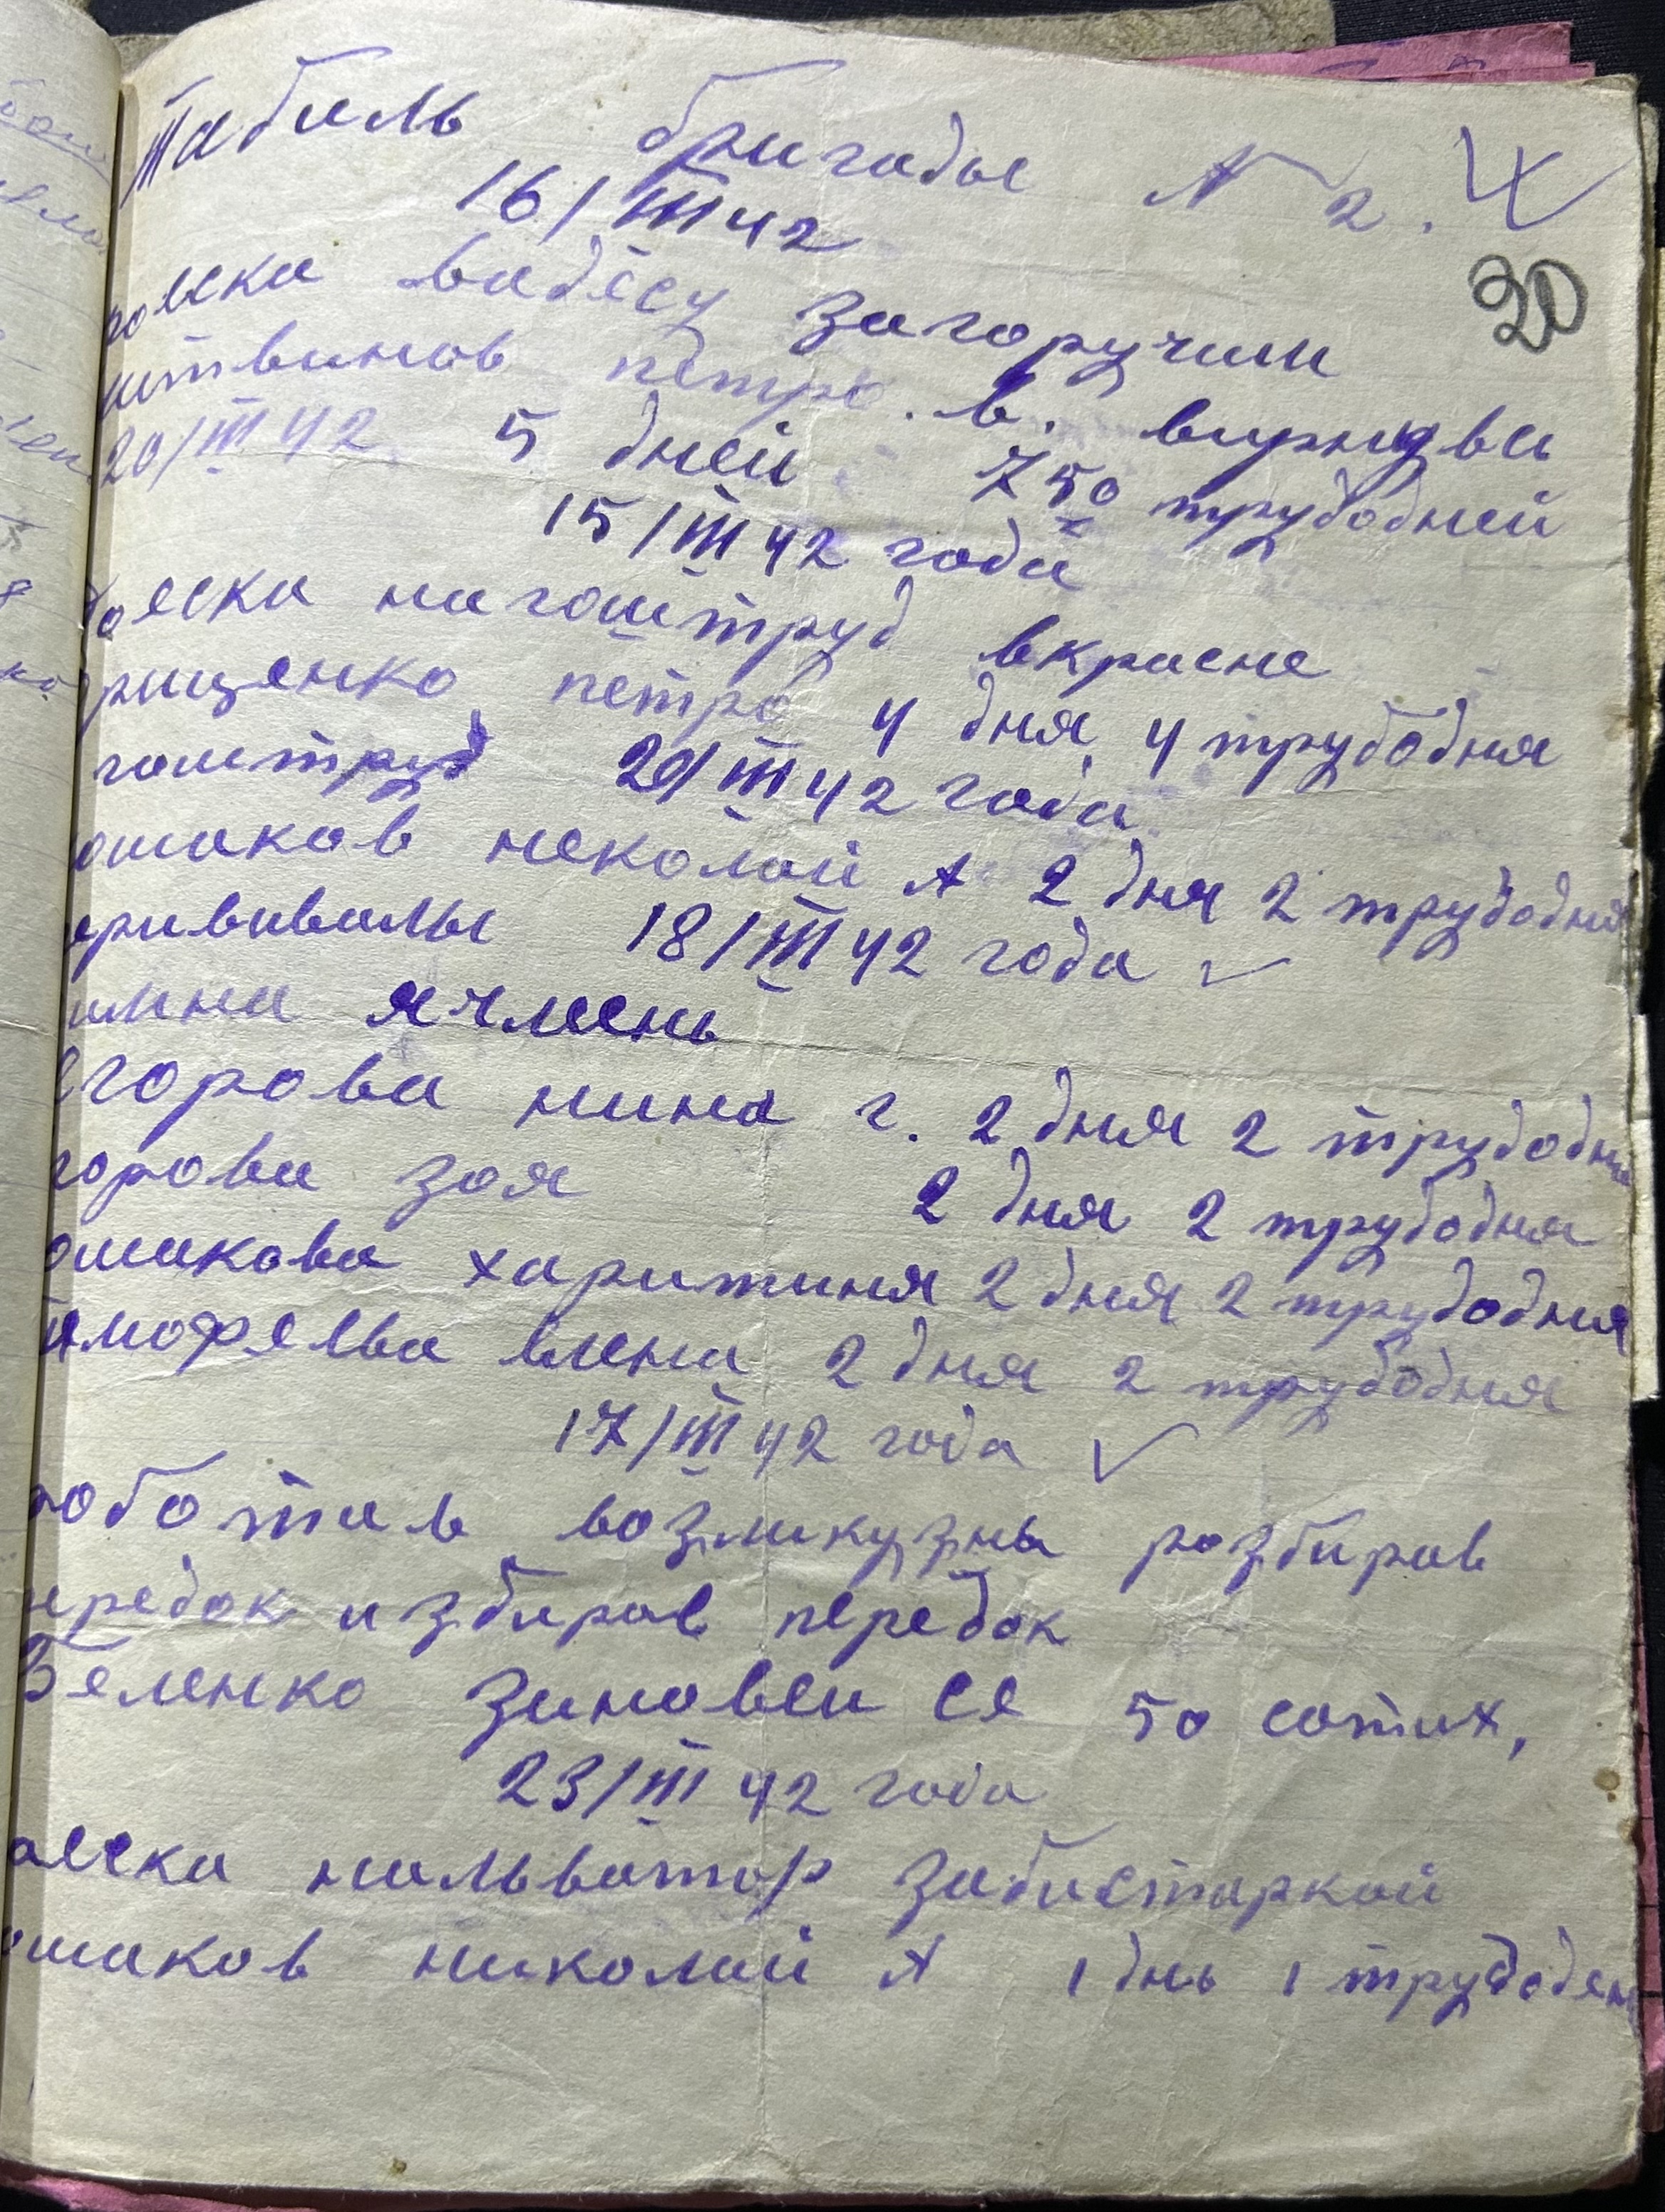 Табиль бригады N 2.
20
16/III 42
поеска вадесу загоручим
литвинов петро. в. вирнувсь
20/III 42 5 дней 7 50 трудодней
15/III 42 года
поеска нагоштруд вкрасне
грищенко петро 4 дня 4 трудодня
гоштруд 20/III 42 года
ошаков неколай А 2 дня 2 трудодня
18/III 42 года
ячмень
егорова нина г. 2 дня 2 трудодня
горова зоя 2 дня 2 трудодня
ошакова харитиня 2 дня 2 трудодня
имофяева елена 2 дня 2 трудодня
17/III 42 года
работав возмикузны розбирав
передок избирав передок
Зеленко зиновеи се 50 сотих,
23/III 42 года
оеска
ошаков николай А 1 днь 1 трудодень